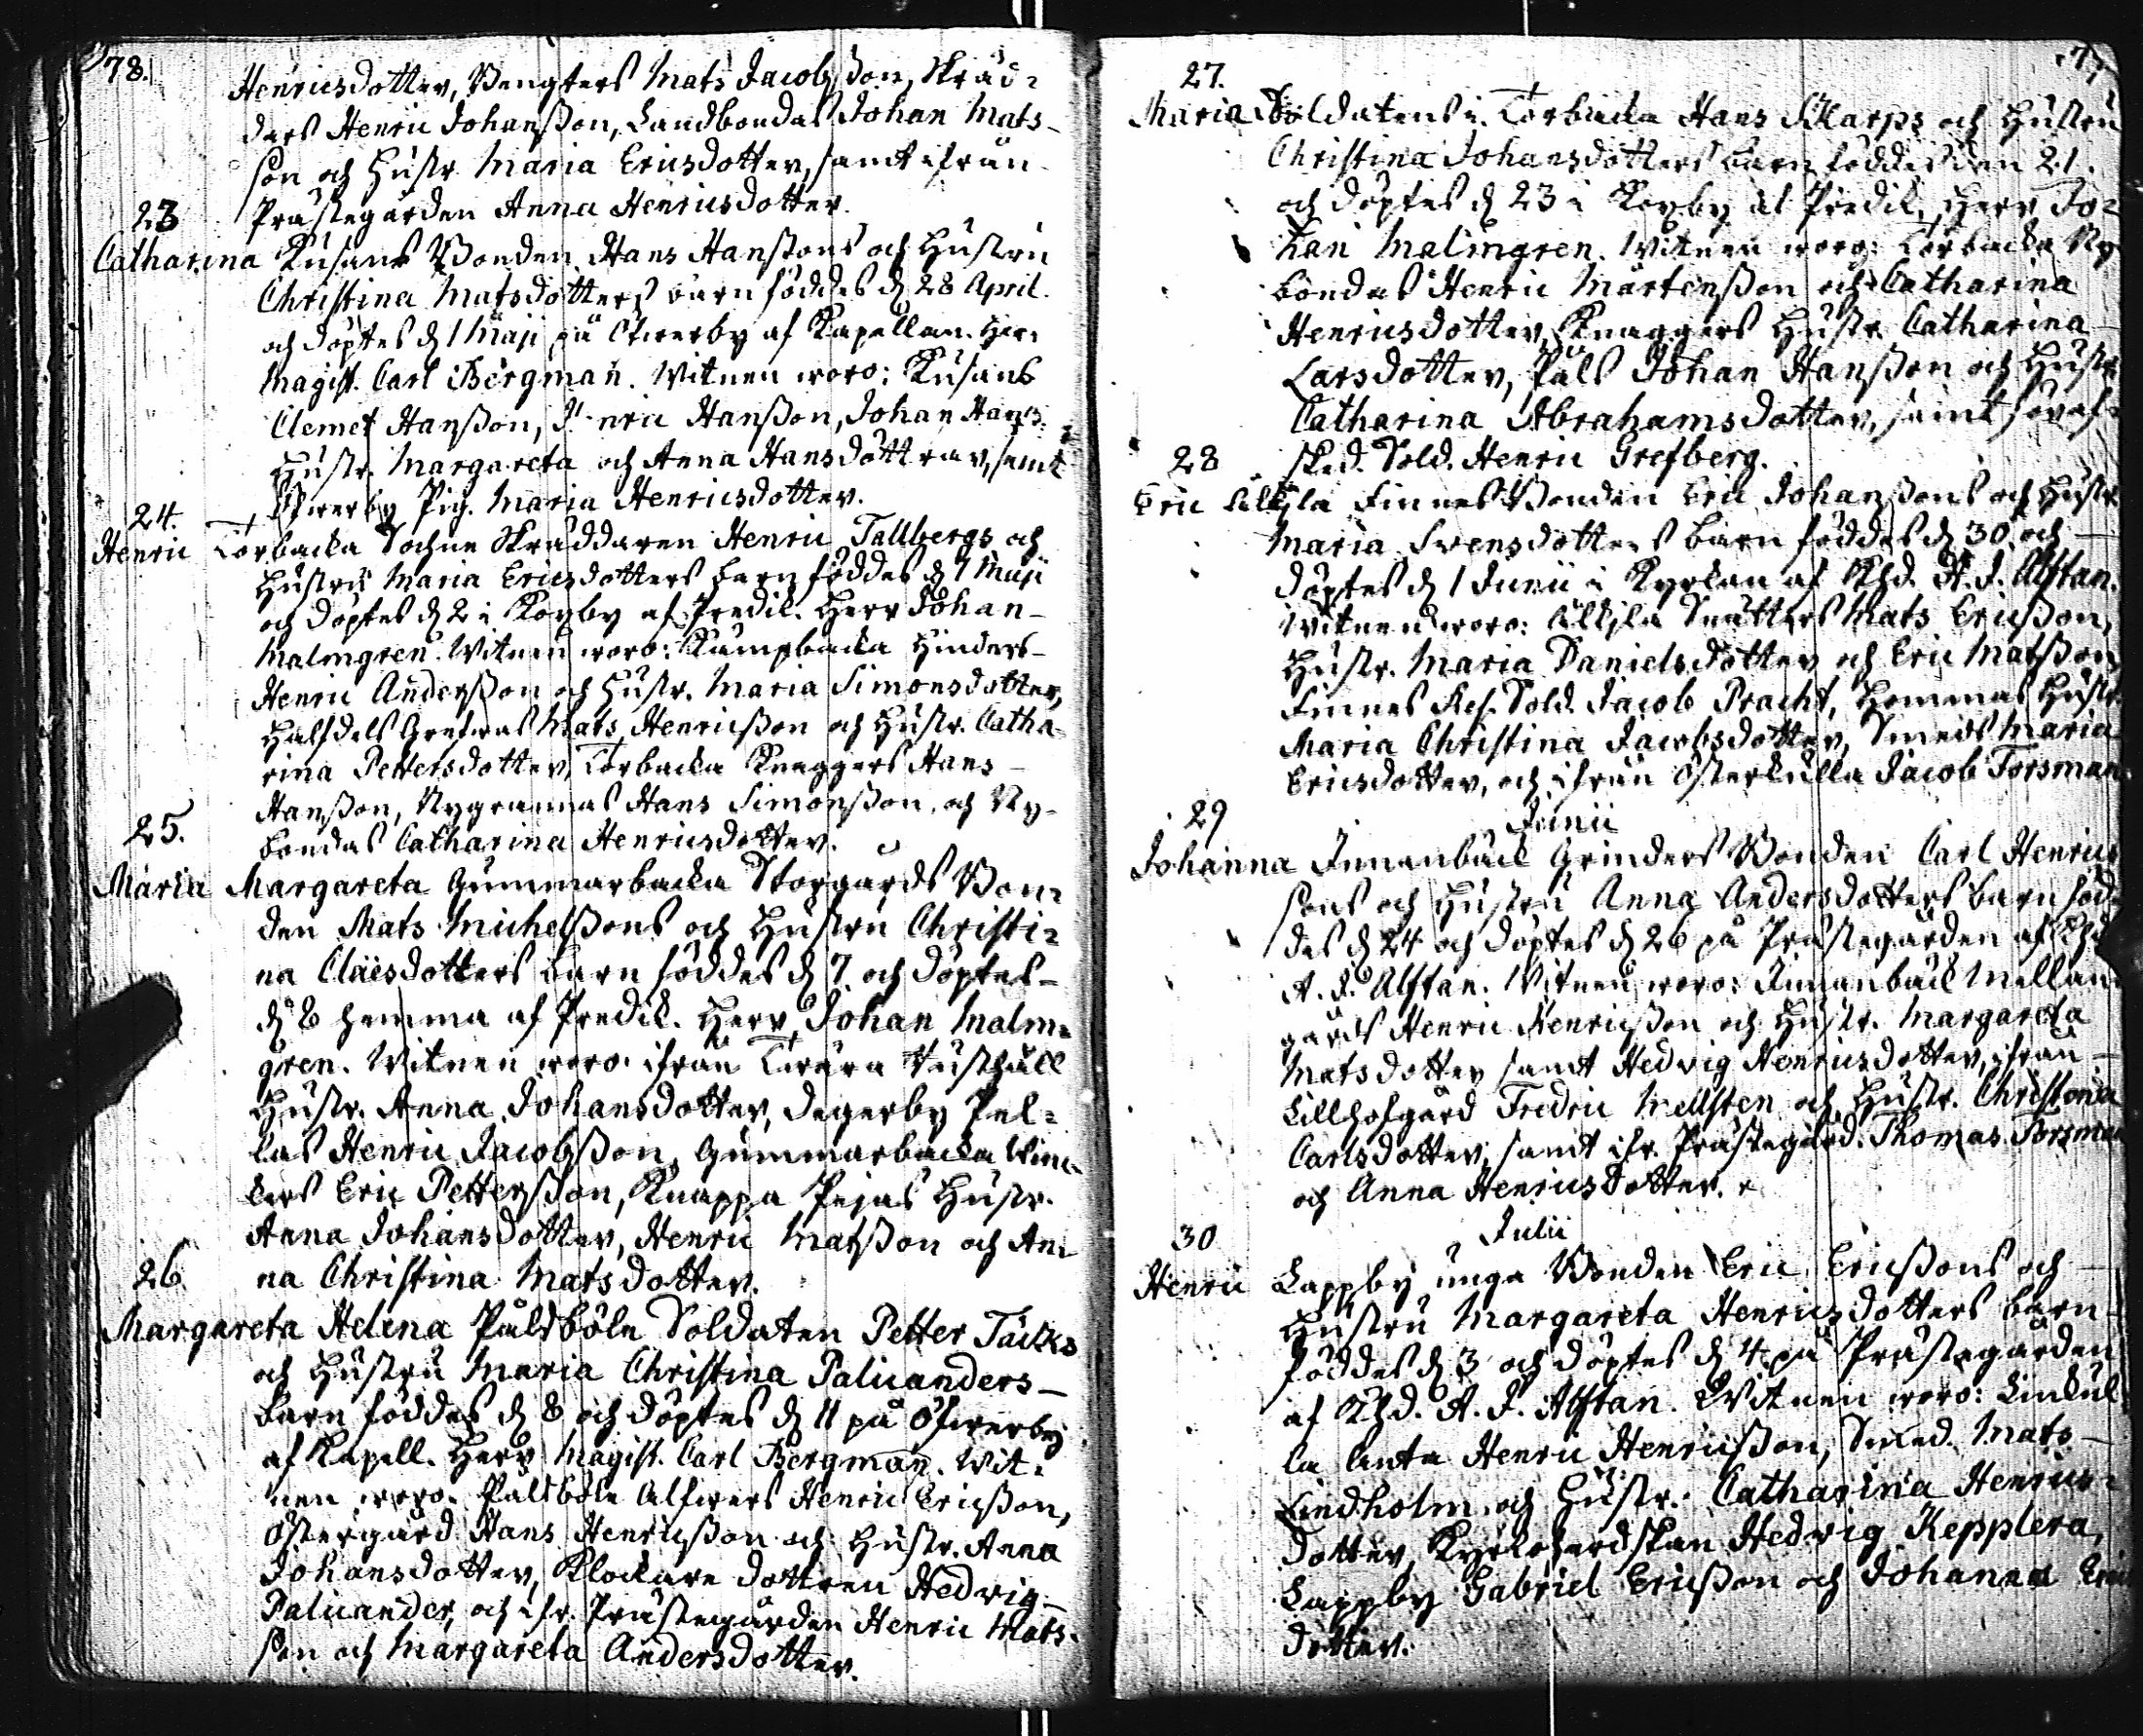 78.
Henricsdotter, Bengters Mats Jacobsson, Skräd-
dars Henric Johansson, Landbondas Johan Mats-
son och Hustr. Maria Ericsdotter, samt ifrån
Prästegården Anna Henricsdotter.
23
Catharina Kusans Bonden Hans Hanssons och Hustru
Christina Matsdotters barn föddes d. 28 April.
och döptes d. 1 Maji på Öfwerby af Kapellan. Herr
Magist. Carl Bergman. Witnen woro: Kusans
Clemet Hansson, Henric Hansson, Johan Hanss.
Hustr. Margareta och Anna Hansdöttrar, samt
Öfwerby Pig. Maria Henricsdotter.
24.
Henric Torbacka Sochne Skräddaren Henric Tallbergs och
Hustru Maria Ericsdotters barn föddes d. 1 Maji
och döptes d. 2 i Koxby af Predik. Herr Johan
Malmgren. Witnen woro: Kampbacka Hinders
Henric Andersson och Hustr. Maria Simonsdotter,
Halfdels Grefwas Mats Henricsson och Hustr. Catha-
rina Pettersdotter, Torbacka Knaggers Hans
Hansson, Nygrannas Hans Simonsson, och Ny-
bondas Catharina Henricsdotter.
25.
Maria Margareta Gummarbacka Storgårds Bon-
den Mats Michelssons och Hustru Christi-
na Claesdotters barn föddes d. 7. och döptes
d. 8 hemma af Predik. Herr Johan Malm-
gren. Witnen woro. ifrån Torära Rusthåll
Hustr. Anna Johansdotter, Degerby Pel-
las Henric Jacobsson, Gummarbacka Winc-
lars Eric Pettersson, Knappa Pejas Hustr.
Anna Johansdotter, Henric Matsson och An-
na Christina Matsdotter.
26
Margareta Helena Pålsböle Soldaten Petter Täcks
och Hustru Maria Christina Palicanders
barn föddes d. 8 och döptes d. 11 på Öfwerby
af Kapell. Herr Magist. Carl Bergman. Wit-
nen woro. Pålsböle Alfwers Henric Ericsson,
Östergård Hans Henricsson och Hustr. Anna
Johansdotter, Klockare dottren Hedwig
Palicander, och ifr. Prästegården Henric Mats-
son och Margareta Andersdotter.
77
27.
Maria Soldatens i Torbacka Hans Skarps och Hustru
Christina Johansdotters barn föddes den 21.
och döptes d. 23 i Koxby af Predik. Herr Jo-
han Malmgren. Witnen woro: Torbacka Ny-
bondas Henric Mårtensson och Catharina
Henricsdotter, Knaggers Hustr. Catharina
Larsdotter, Påls Johan Hansson och Hustr.
Catharina Abrahamsdotter, samt föraf-
sked. Sold. Henric Grefberg.
28
Eric Finnes Bonden Eric Johanssons och Hustr.
Maria Svensdotters barn föddes d. 30 och
döptes d. 1 Junii i Kyrkan af Khd. A. J. Alftan.
Witnen woro: Mats Ericsson,
Hustr. Maria Danielsdotter och Eric Matsson,
Finnes Ref. Sold. Jacob Pracht, Hommas Hustr.
Maria Christina Jacobsdotter, Smeds Maria
Ericsdotter, och ifrån Österkulla Jacob Forsman.
29
Junii
Johanna Finnanbäck Grinders Bonden Carl Henrics
sons och Hustru Anna Andersdotters barn föd-
des d. 24 och döptes d. 26 på Prästegården af Khd.
A. J. Alftan. Witnen woro: Finnanbäck Mellan-
gårds Henric Henricsson och Hustr. Margareta
Matsdotter samt Hedvig Henricsdotter, ifrån
Lillhofgård Fredric Mellsten och Hustr. Christina
Carlsdotter, samt ifr. Prästegård. Thomas Forsman
och Anna Henricsdotter.
30
Julii
Henric Lappby unga Bonden Eric Ericssons och
Hustru Margareta Henricsdotters barn
föddes d. 3 och döptes d. 4 på Prästegården
af Khd. A. J. Alftan. Witnen woro: Linkul-
la Anta Henric Henricsson, Smed. Mats
Lindholm och Hustr. Catharina Henrics-
dotter, Kyrkoherdskan Hedwig Kepplera,
Lappby Gabriel Ericsson och Johanna Erics
dotter.